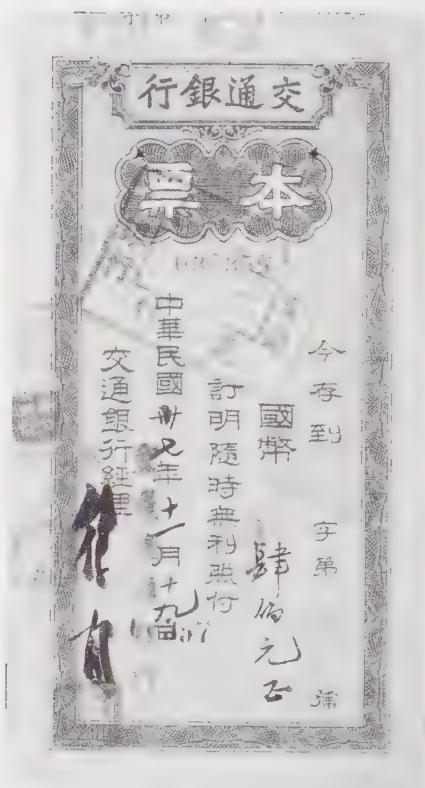 交通銀行
本票
今存到 字第 號
國幣 肆佰元正
訂明隨時無利照付
中華民國卅七年十一月十九日
交通銀行經理